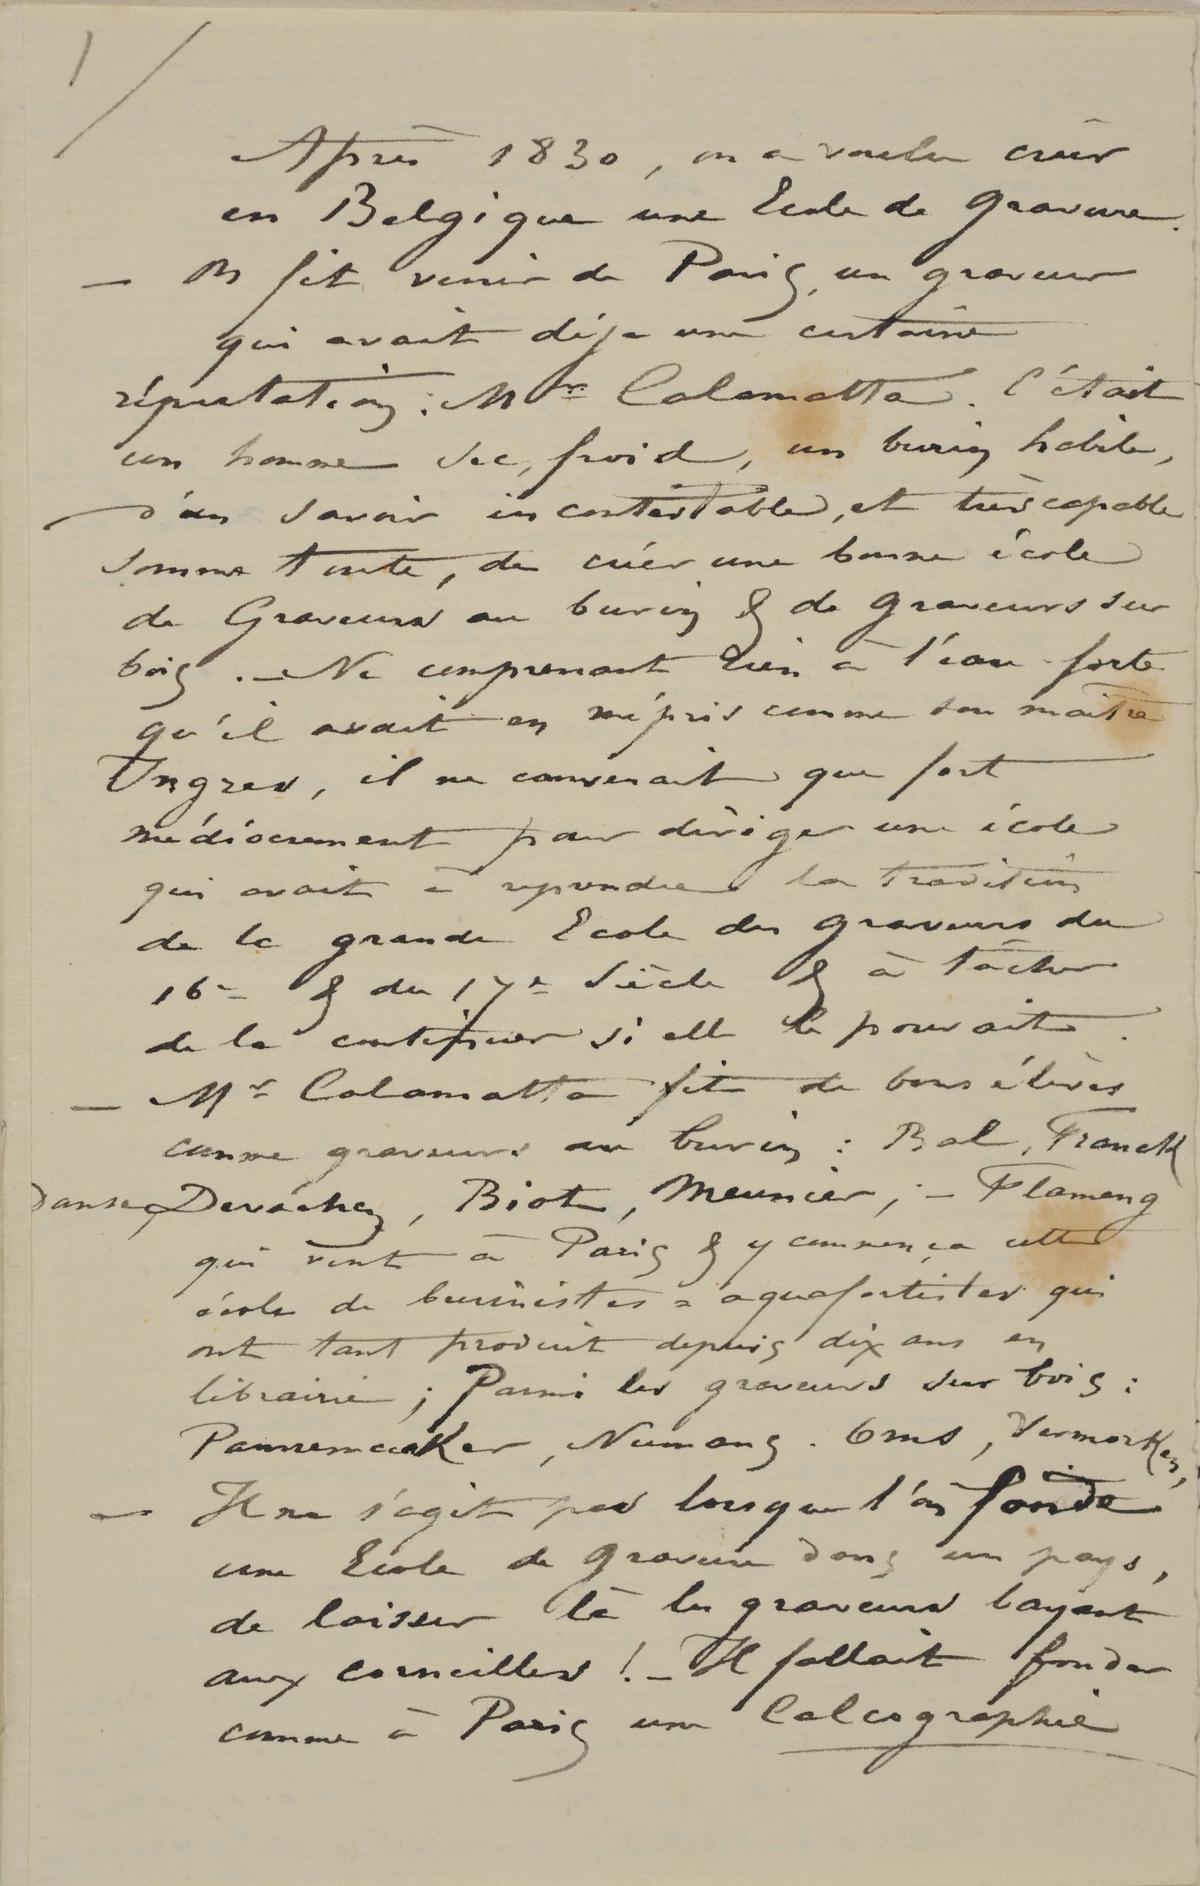 1/
Après 1830, on a voulu créer
en Belgique une Ecole de Gravure.
— On fit venir de Paris, un graveur
qui avait déja une certaine
réputation: Mr Calamatta. C'était
un homme sec, froid, un burin habile,
d'un savoir incontestable, et très capable
somme toute, de créer une bonne école
de Graveurs au burin & de graveurs sur
bois. — Ne comprenant rien à l'eau-forte
qu'il avait en mépris comme son maître
Ingres, il ne convenait que fort
médiocrement pour diriger une école
qui avait à reprendre la tradition
de la grande Ecole des graveurs du
16e & du 17e siècle & à tâcher
de la continuer si elle le pouvait.
— Mr Calamatta fit de bons élèves
comme graveurs au burin: Bal, Franck
Danse, Devachez, Biot, Meunier, ; — Flameng
qui vint à Paris & y commença cette
école de burinistes = aquafortistes qui
ont tant produit depuis dix ans en
librairie; Parmi les graveurs sur bois:
Pannemaeker, Numans. Oms, Vermorken,
— Il ne s'agit pas lorsque l'on fonde
une Ecole de Gravure dans un pays,
de laisser là les graveurs bayant
aux corneilles! — Il fallait fonder
comme à Paris une Calcographie